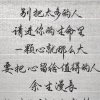 别把太多的人
请进你的生命里
一颗心就那么大
要把心留给值得的人
余生漫长